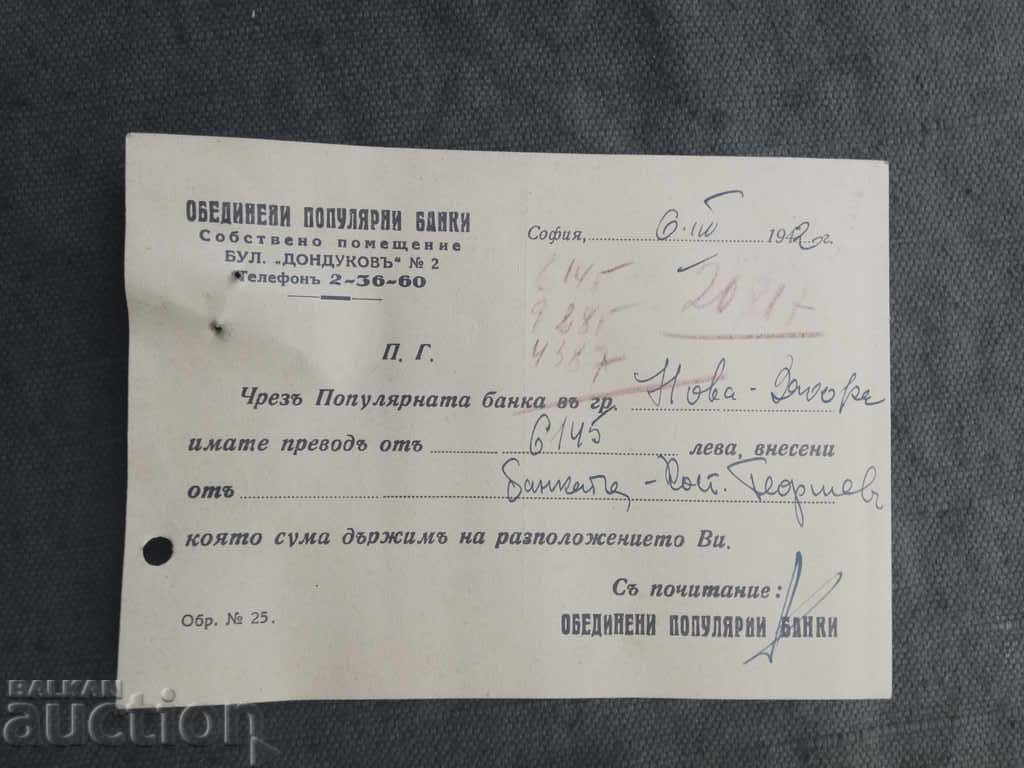 ОБЕДИНЕНИ ПОПУЛЯРНИ БАНКИ
Собствено помещение
БУЛ. „ДОНДУКОВЪ“ № 2
Телефонъ 2-36-60
София, 6.III 1942 г.
6145
9285
4387
П. Г.
Чрезъ Популярната банка въ гр. Нова-Загора
имате преводъ отъ 6145 лева, внесени
отъ Банката - Георгиевъ
която сума държимъ на разположението Ви.
Съ почитание:
ОБЕДИНЕНИ ПОПУЛЯРНИ БАНКИ
Обр. № 25.
BALKAN
auction